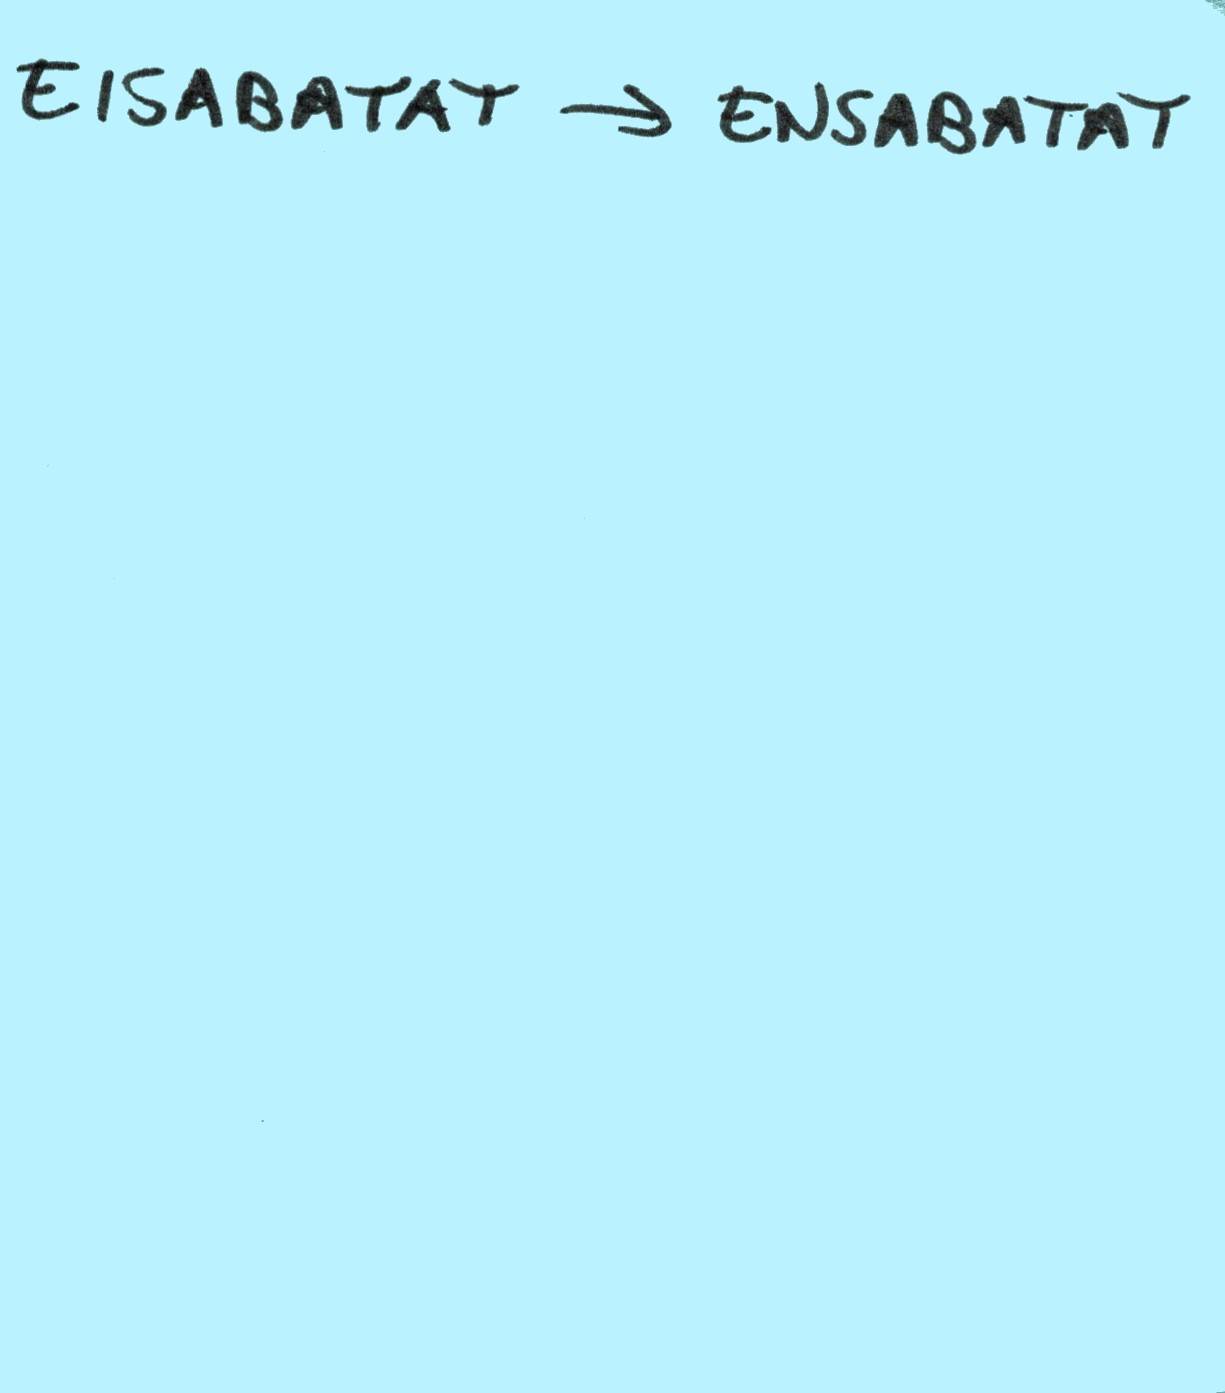 EISABATAT → ENSABATAT